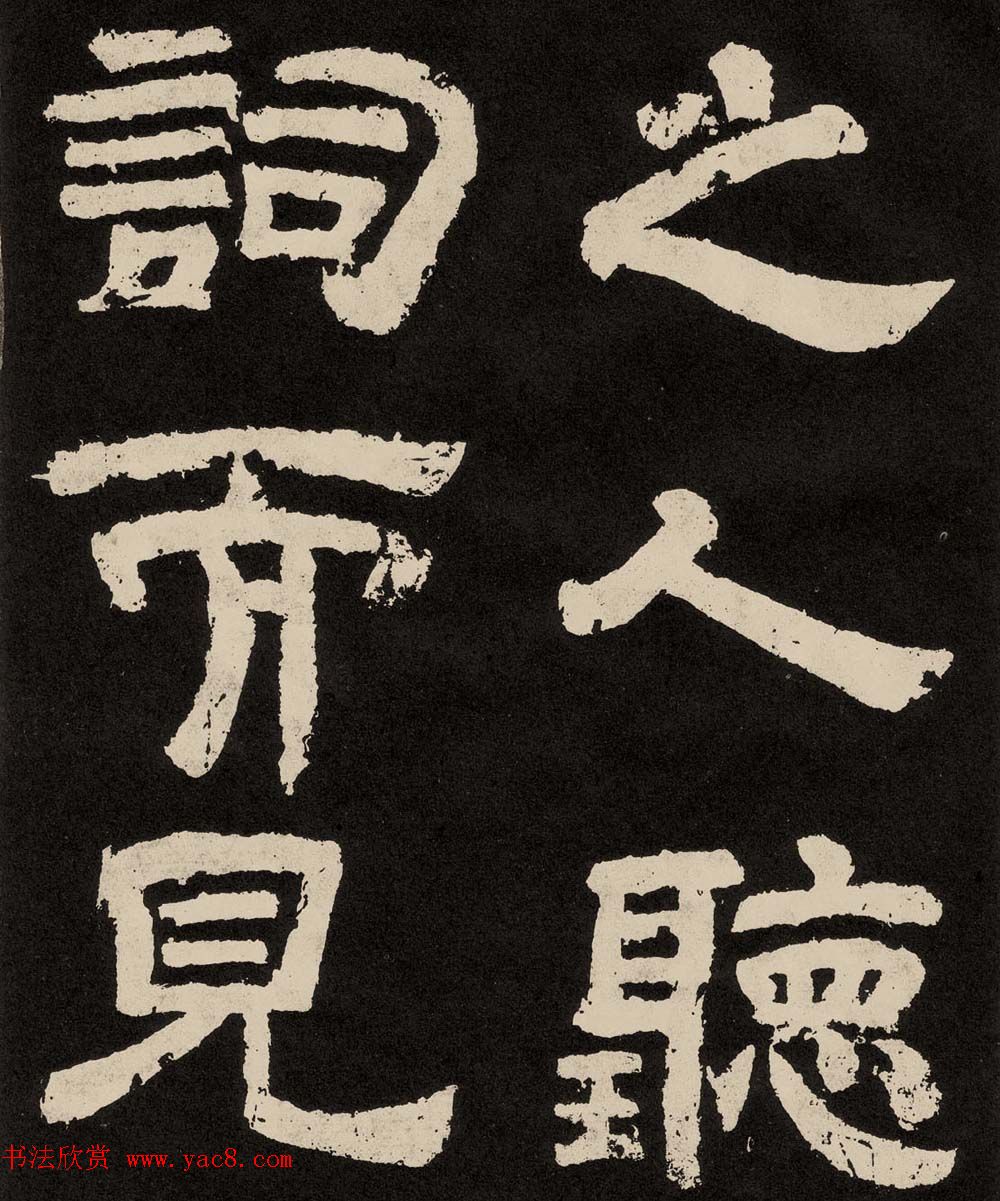 之人聽
詞而見
书法欣赏 www.yac8.com